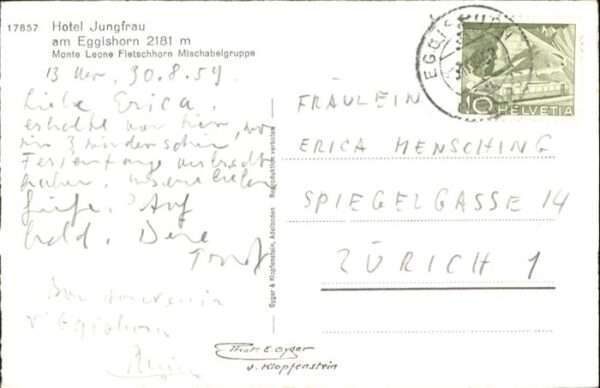 17857 Hotel Jungfrau
am Eggishorn 2181 m
Monte Leone Fletschhorn Mischabelgruppe
30.8.59.
Liebe Erica,
erhalte von hier, wo
wir 3 wunderschöne
Ferientage verbracht
haben, unsere lieben
Grüße. Auf
bald. Deine
Bon souvenir
d'Eggishorn
EGGISHORN
10 HELVETIA
FRÄULEIN
ERICA MENSCHING
SPIEGELGASSE 14
ZÜRICH 1
Gyger & Klopfenstein, Adelboden Reproduktion verboten
Phot. E. Gyger
v. Klopfenstein